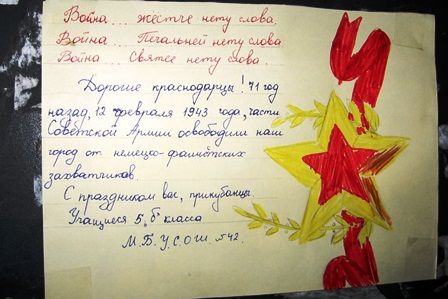 Война... жёстче нету слова.
Война... Печальней нету слова
Война... Святее нету слова.
Дорогие краснодарцы! 71 год
назад, 12 февраля 1943 года, части
Советской Армии освободили наш
город от немецко-фашистских
захватчиков.
С праздником вас, прикубанцы.
Учащиеся 5 "б" класса
М.Б.У.С.О.Ш. №42.